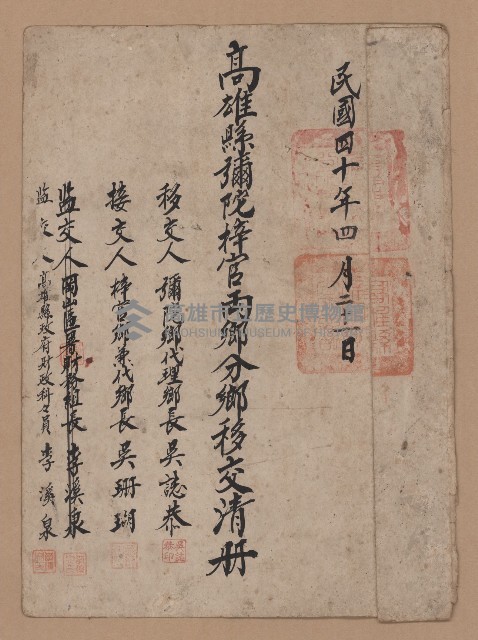 民國四十年四月二日
高雄縣彌陀梓官兩鄉分鄉移交清册
移交人 彌陀鄉代理鄉長 吳誌恭
接交人 梓官鄉兼代鄉長 吳珊瑚
監交人 岡山區署財務組長 李溪泉
監交人 高雄縣政府財政科科員 李溪泉
高雄市立歷史博物館
KAOHSIUNG MUSEUM OF HISTORY